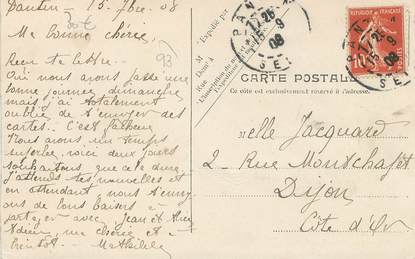 Pantin - 15 - 7bre - 08
Ma bonne chérie,
Reçu ta lettre.
Oui nous avons passé une
bonne journée dimanche
mais j'ai totalement
oublié de t'envoyer des
cartes. C'est fâcheux
Nous avons un temps
superbe, voici deux jours
souhaitons que cela dure
J'attends tes nouvelles et
en attendant nous t'envoy
ons de bons baisers à
partager avec Jean et
Adieu, ma chérie et à
bientôt. Mathilde
93
Expédié par
M
Dom
Rue
CARTE POSTALE
Ce côté est exclusivement réservé à l'adresse
PANTIN
15-9
08
SEINE
10
Melle Jacquard
2 Rue Montchapet
Dijon
Côte d'Or